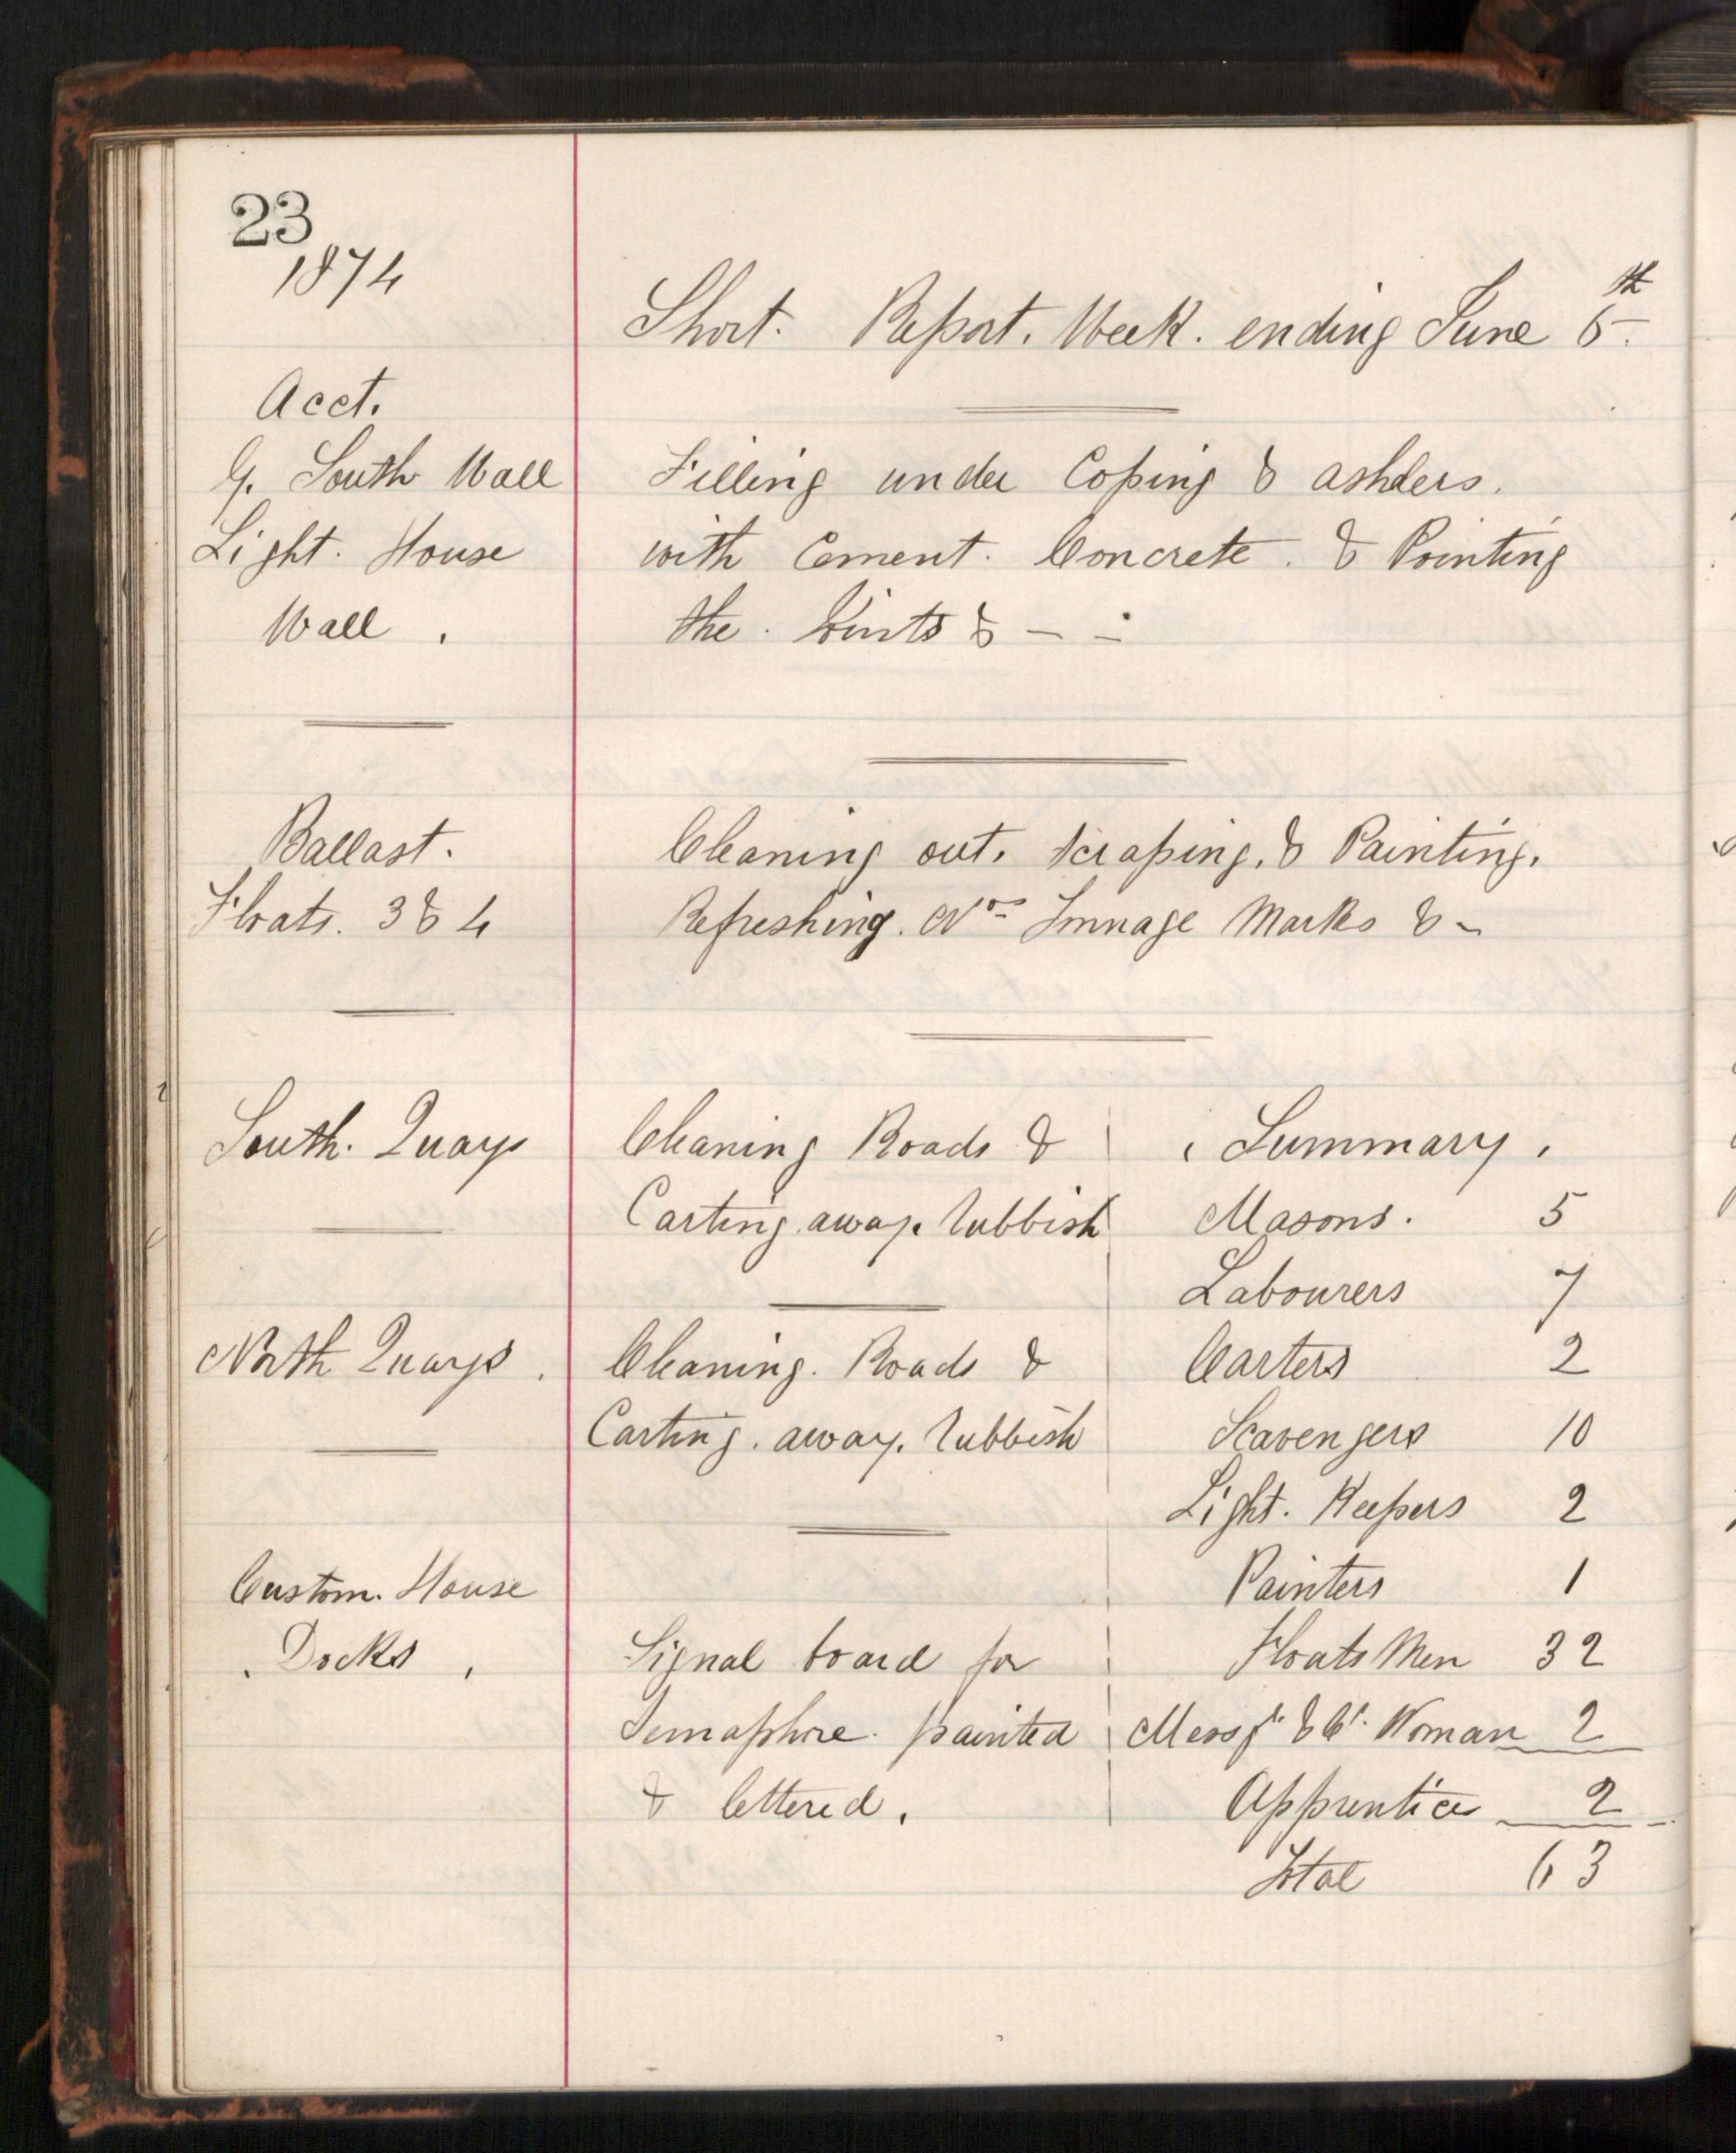 23
1874
Short. Report. Week. ending June 6th.
Acct.
G. South Wall
Light. House
Wall.
Filling under Coping & ashlers.
with Cement. Concrete. & Pointing
the. Joints & - -
Ballast.
Floats. 3 & 4
Cleaning out. scraping. & Painting.
Refreshing. Nos Tonnage Marks & -
South. Quays
Cleaning Roads &
Carting away. rubbish
North Quays.
Cleaning. Roads &
Carting. away. rubbish
Custom. House
Docks,
Signal board for
Semaphore. painted
& lettered.
Summary,
Masons. 5
Labourers 7
Carters 2
Scavengers 10
Light. Keepers 2
Painters 1
Floats Men 32
Messr & Ct. Woman 2
Apprentice 2
Total 63